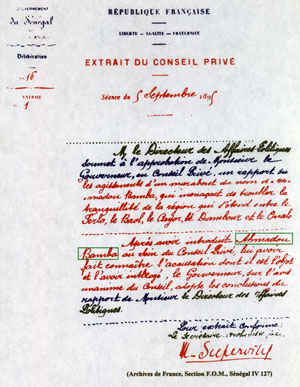 GOUVERNEMENT
du Sénégal
RÉPUBLIQUE FRANÇAISE
LIBERTÉ — EGALITÉ — FRATERNITÉ
Délibération
EXTRAIT DU CONSEIL PRIVÉ
No 16
Séance du 5 Septembre 1895
EXTRAIT
No 1
M. le Directeur des Affaires Politiques
soumet à l'approbation de Monsieur le
Gouverneur, en Conseil Privé, un rapport sur
les agissements d'un marabout du nom de
Bamba, qui menaçait de troubler la
tranquillité de la région qui s'étend entre le
Ferlo, le Baol, le Cayor, et le
Après avoir introduit Ahmadou
Bamba au sein du Conseil Privé, lui avoir
fait connaître l'accusation dont il est l'objet
et l'avoir interrogé, le Gouverneur, sur l'avis
unanime du Conseil, adopte les conclusions du
rapport de Monsieur le Directeur des affaires
Politiques.
Pour extrait conforme:
Le Secrétaire archiviste
M. Superville
(Archives de France, Section F.O.M., Sénégal IV 127)